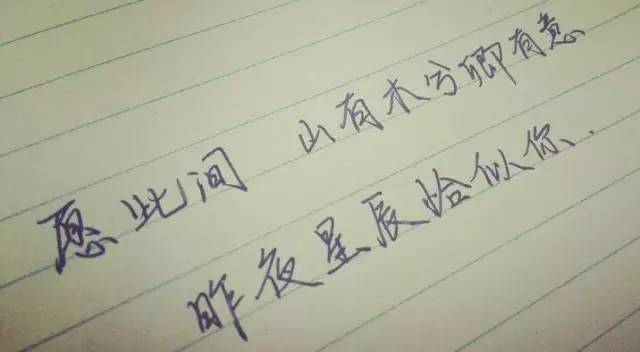 愿此间 山有木兮卿有意
昨夜星辰恰似你.